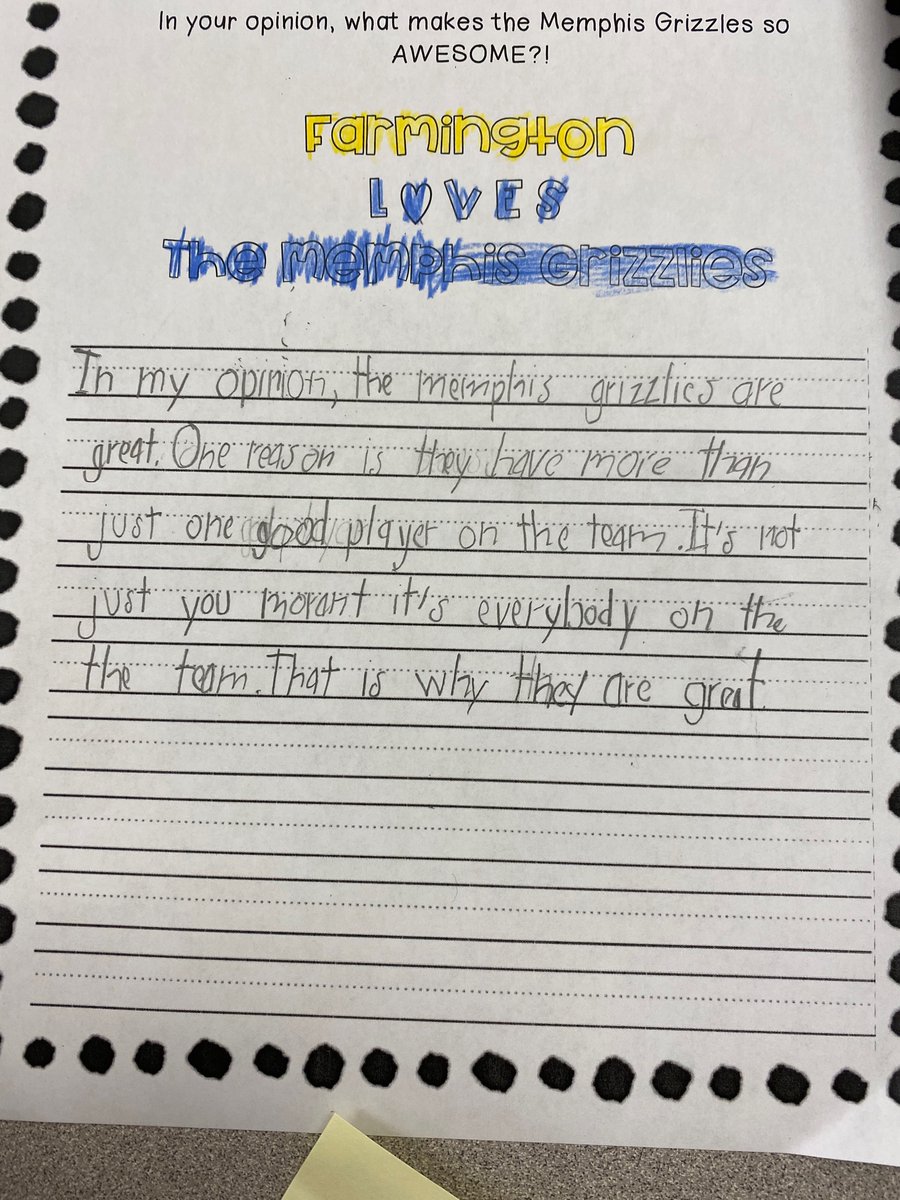 In your opinion, what makes the Memphis Grizzles so
AWESOME?!
Farmington
LOVES
The Memphis Grizzlies
In my opinion, the memphis grizzlies are
great. One reason is they have more than
just one good player on the team. It's not
just you morant it's everybody on the
the team. That is why they are great